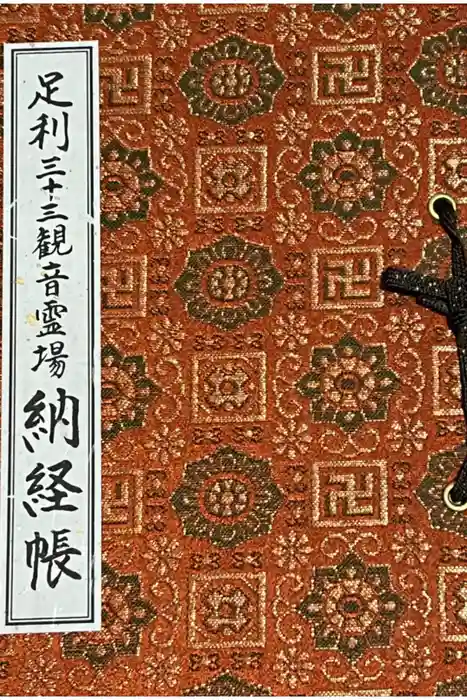 足利三十三観音霊場納経帳